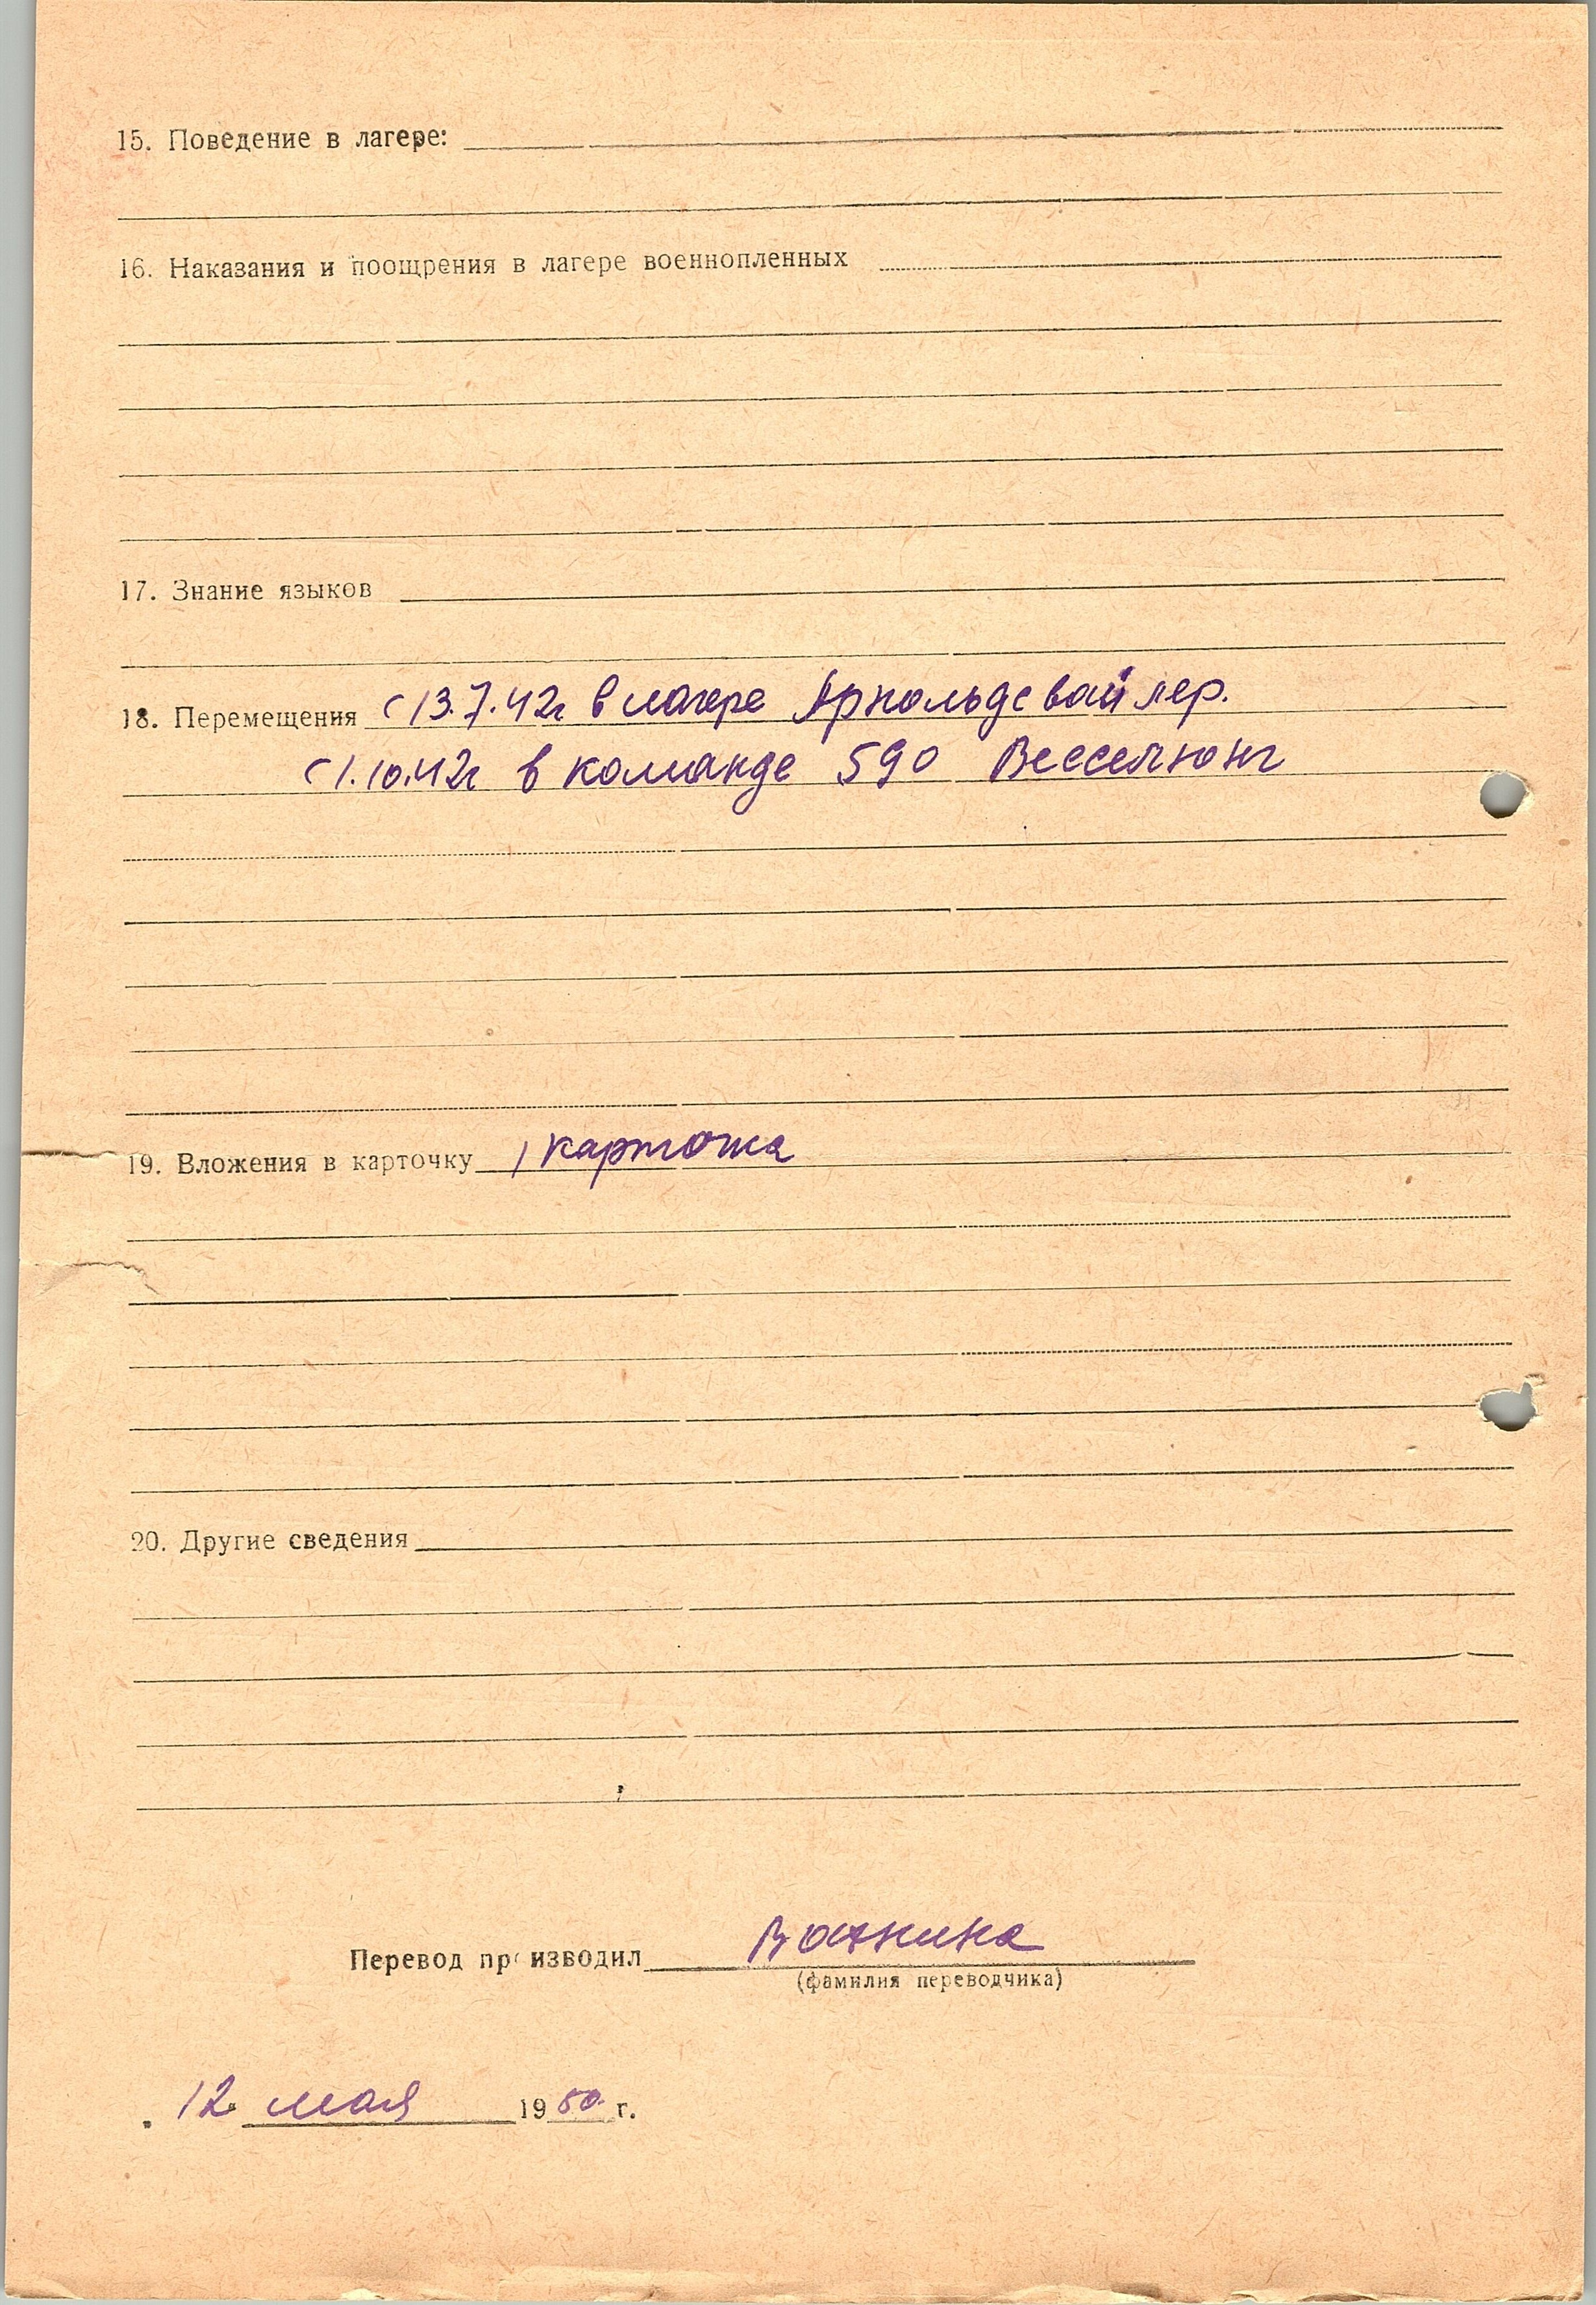 15. Поведение в лагере:
16. Наказания и поощрения в лагере военнопленных
17. Знание языков
18. Перемещения с 13.7.42г в лагере Арнольдсвайлер.
с 1.10.42г в команде 590 Весселюнг
19. Вложения в карточку 1 карточка
20. Другие сведения
Перевод производил
(фамилия переводчика)
12 мая 1950 г.